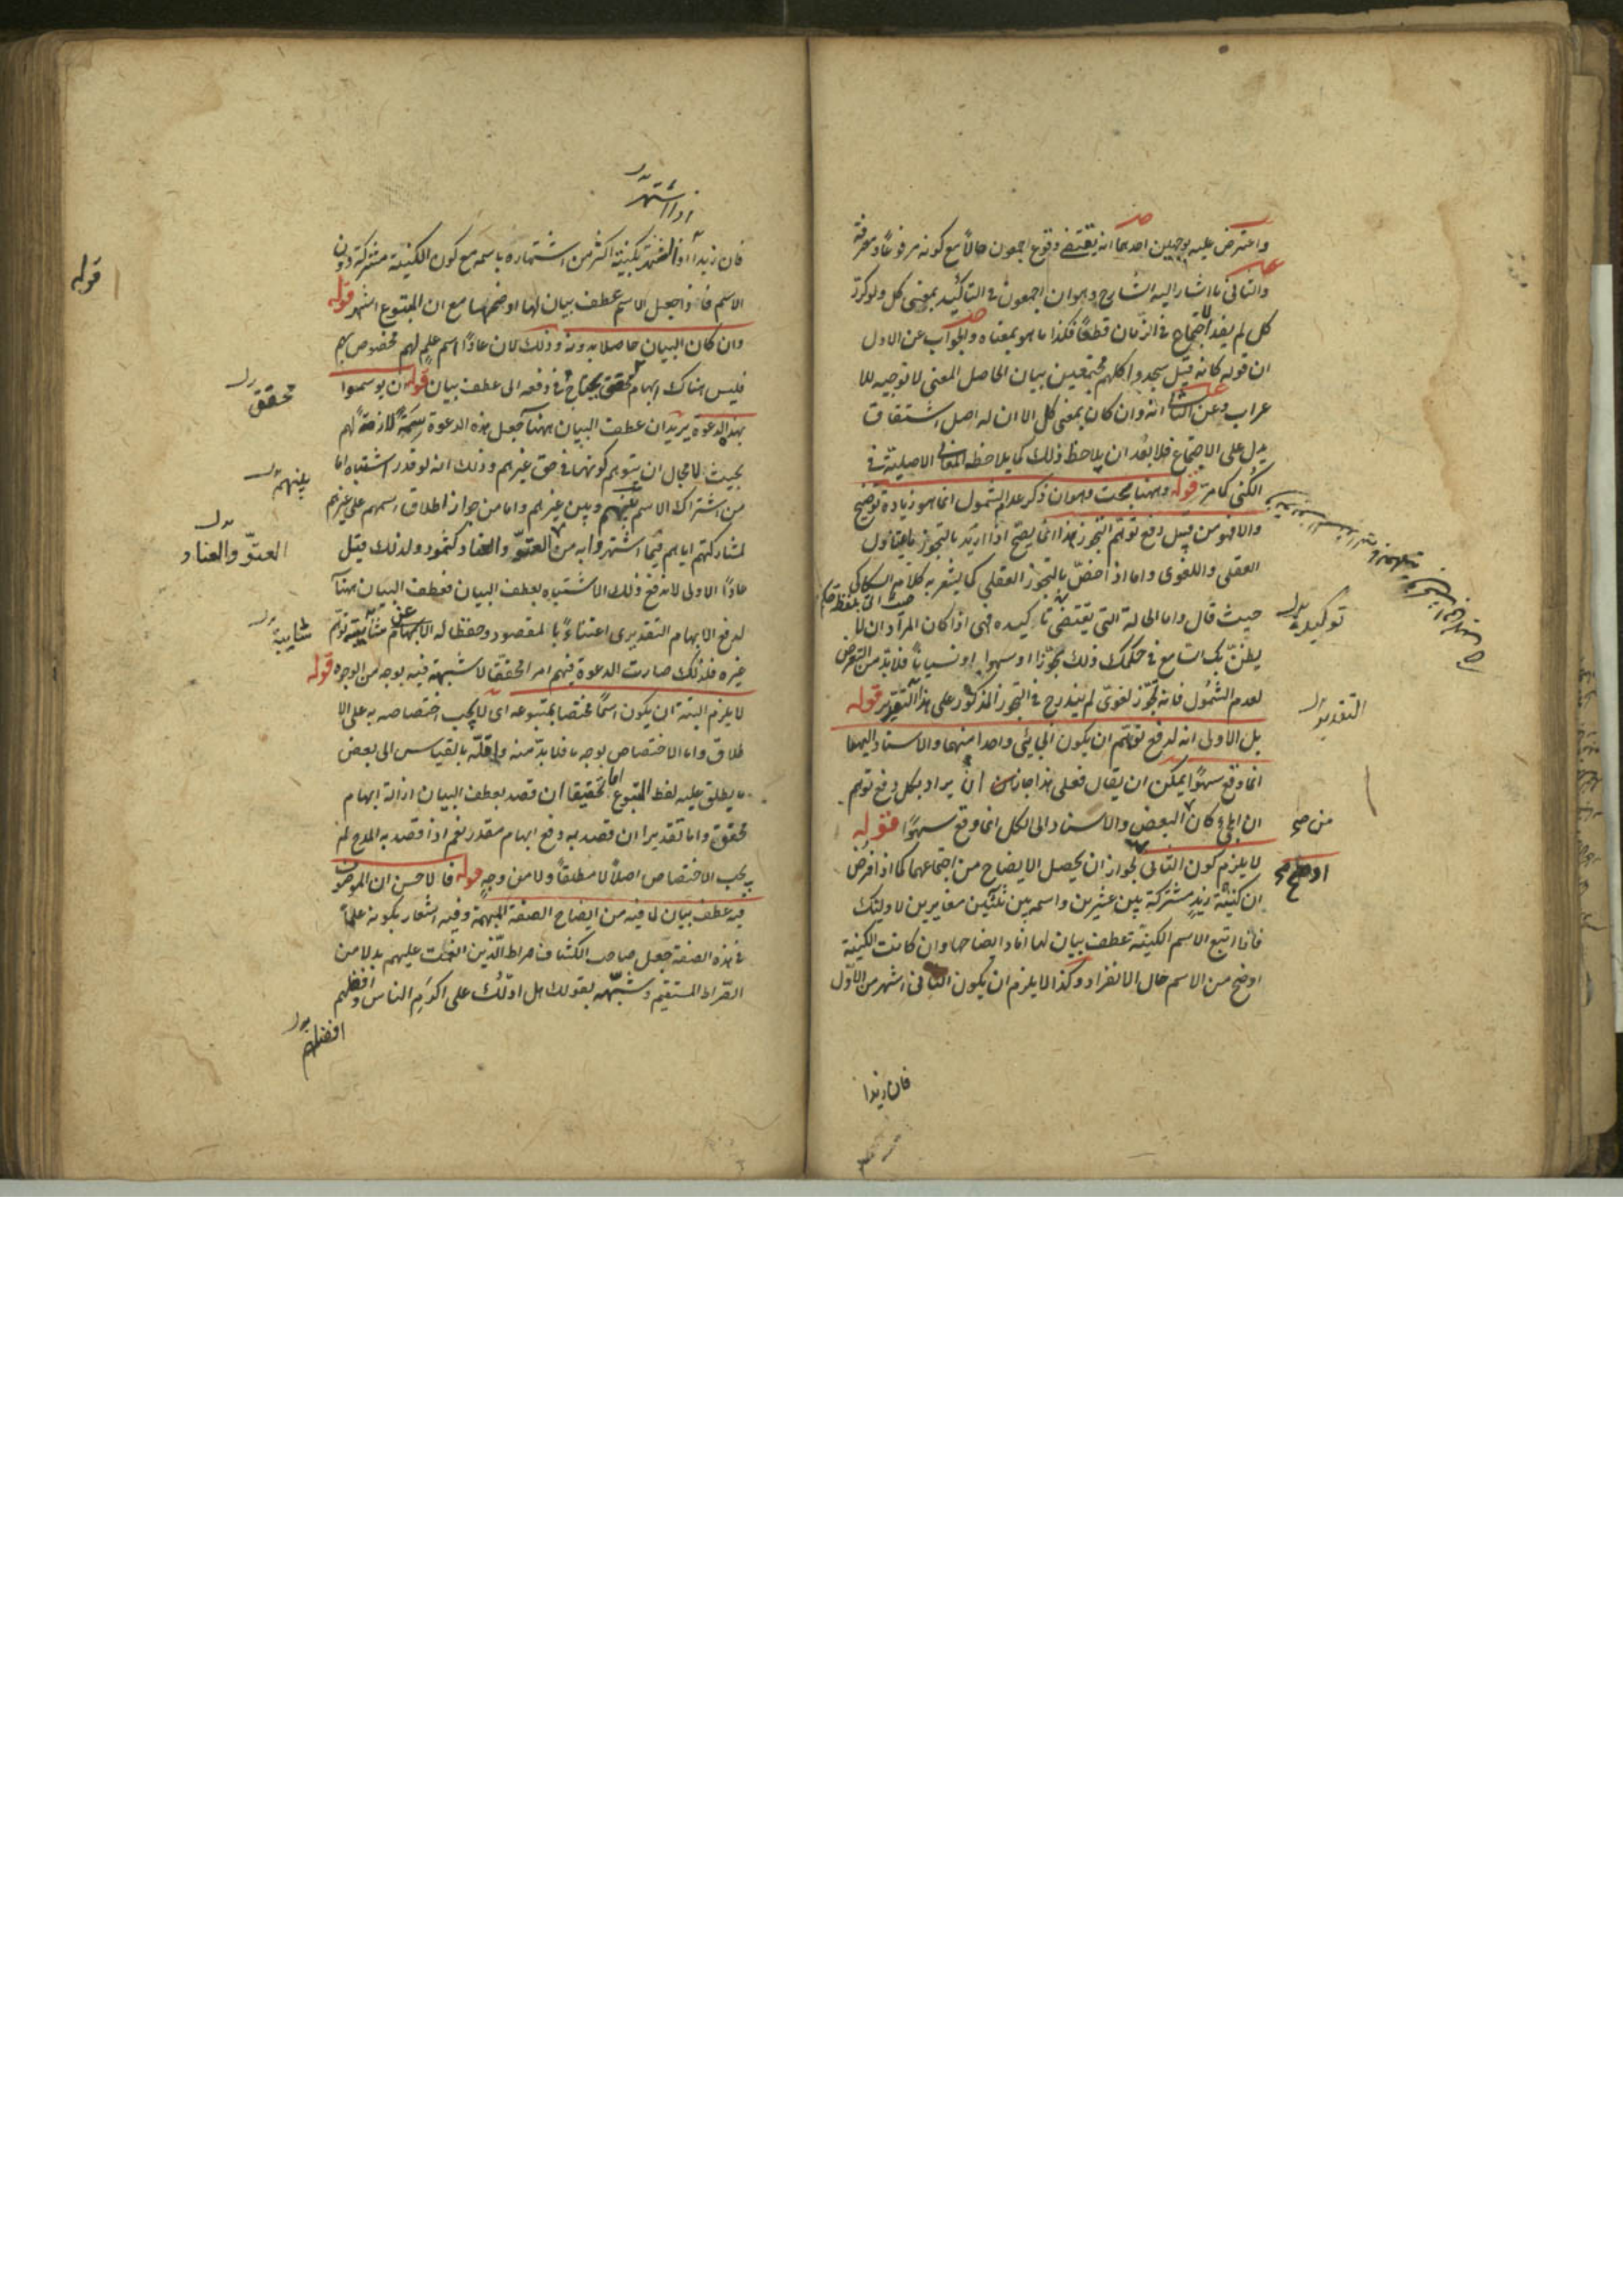 واعترض عليه بوجهين احدهما انه يقتضى وقوع اجمعون حالا مع كونه مرفوعا ومعرفة
والثانى ما اشار اليه الشارح وهو ان اجمعون فى التأكيد بمعنى كل ولو كرر
كل لم يفد الاجتماع فى الزمان قطعا فكذا ما هو بمعناه والجواب عن الاول
ان قوله كانه قيل سجدوا كلهم مجتمعين بيان لحاصل المعنى لا توجيه للا
عراب وعن الثانى انه وان كان بمعنى كل الا ان له اصل اشتقاق
يدل على الاجتماع فلا بعد ان يلاحظ ذلك كما يلاحظ المعانى الاصلية فى
الكنى كما مر قوله وههنا بحث وهو ان ذكر عدم الشمول انما هو زيادة توضيح
والا فهو من قبيل دفع توهم التجوز هذا انما يصح اذا اريد بالتجوز ما يتناول
العقلى واللغوى واما اذ اخص بالتجوز العقلى كما يشعر به كلام السكاكى
حيث قال واما الحالة التى تقتضى تأكيده فهى اذا كان المراد ان لا
يظن بك السامع فى حكمك ذلك تجوزا او سهوا او نسيانا فلا بد من التعرض
لعدم الشمول فانه تجوز لغوى لم يندرج فى التجوز المذكور على هذا التقدير قوله
بل الاولى انه لدفع توهم ان يكون الجائى واحدا منهما والاسناد اليهما
انما وقع سهوا يمكن ان يقال فعلى هذا جاز ان يراد بكل دفع توهم
ان الجائى كان البعض والاسناد الى الكل انما وقع سهوا قوله
لا يلزم كون الثانى لجواز ان يحصل الايضاح من اجتماعهما كما اذا فرض
ان كنية زيد مشتركة بين عشرين واسمه بين ثلثين مغايرين لاولئك
فاذا اتبع الاسم الكنية عطف بيان لها افاد ايضاحها وان كانت الكنية
اوضح من الاسم حال الانفراد وكذا لا يلزم ان يكون الثانى اشهر من الاول
توكيده
التقدير
من صح
اوضح صح
فان زيدا
اذا اشتهر
فان زيدا اذا اشتهر بكنيته اكثر من اشتهاره باسمه مع كون الكنية مشتركة دون
الاسم فاذا جعل الاسم عطف بيان لها اوضحها مع ان المتبوع اشهر قوله
وان كان البيان حاصلا بدونه وذلك لان عادا اسم علم لهم مخصوص بهم
فليس هناك ابهام محقق يحتاج فى دفعه الى عطف بيان قوله ان يوسموا
بهذه الدعوة يريد ان عطف البيان ههنا جعل هذه الدعوة سمة لازمة لهم
بحيث لا مجال ان يتوهم كونها فى حق غيرهم وذلك انه لو قدر اشتباه اما
من اشتراك الاسم بينهم وبين غيرهم واما من جواز اطلاق اسمهم على غيرهم
لمشاركتهم اياهم فيما اشتهروا به من العتو والعناد كثمود ولذلك قيل
عادا الاولى لاندفع ذلك الاشتباه بعطف البيان فعطف البيان ههنا
لدفع الابهام التقديرى اعتناء بالمقصود وحفظا له عن شائبة توهم
غيره فلذلك صارت الدعوة فيهم امرا محققا لا شبهة فيه بوجه من الوجوه قوله
لا يلزم البتة ان يكون اسما مختصا بمتبوعه اى لا يجب اختصاصه به على الا
طلاق واما الاختصاص بوجه ما فلا بد منه واقله بالقياس الى بعض
ما يطلق عليه لفظ المتبوع اما تحقيقا ان قصد بعطف البيان ازالة ابهام
محقق واما تقديرا ان قصد به دفع ابهام مقدر نعم اذا قصد به المدح لم
يجب الاختصاص اصلا لا مطلقا ولا من وجه قوله فالاحسن ان الموصوف
فيه عطف بيان لما فيه من ايضاح الصفة المبهمة وفيه اشعار بكونه علما
فى هذه الصفة جعل صاحب الكشاف صراط الذين انعمت عليهم بدلا من
الصراط المستقيم وشبهه بقولك هل ادلك على اكرم الناس وافضلهم
محقق
بينهم
العتو والعناد
شائبة
افضلهم
قوله